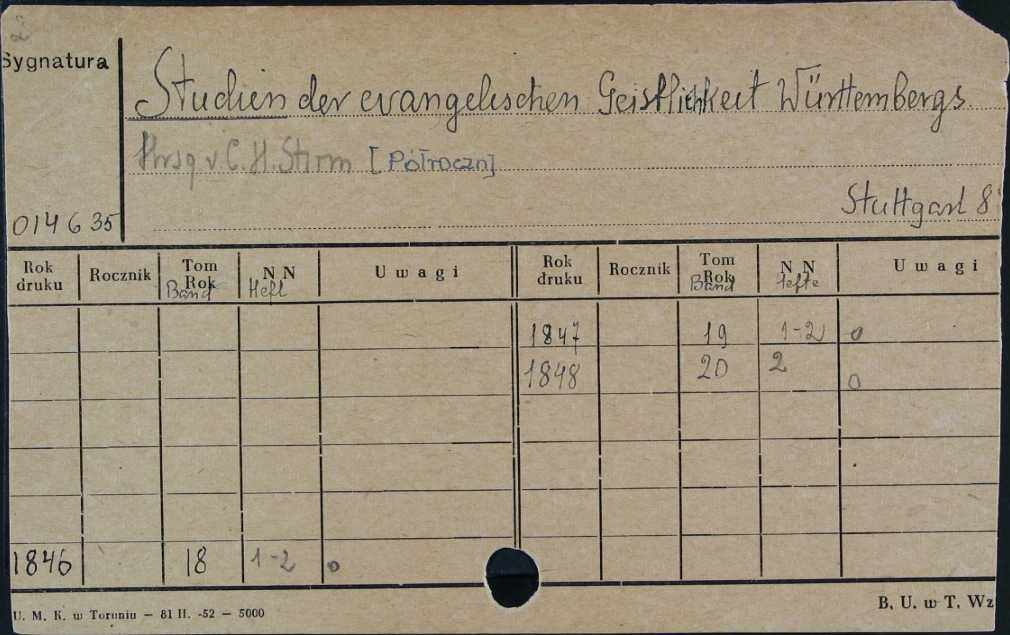 Sygnatura
Studien der evangelischen Geistlichkeit Württembergs
Hrsg v. C. H. Stirm [Półroczn]
Stuttgart 8°
014635
Rok druku Rocznik Tom Rok Band N N Heft Uwagi Rok druku Rocznik Tom Rok Band N N Hefte Uwagi
1847 19 1-2 o
1848 20 2 o
1846 18 1-2 o
U. M. K. w Toruniu — 81 II. -52 — 5000
B. U. w T. Wz